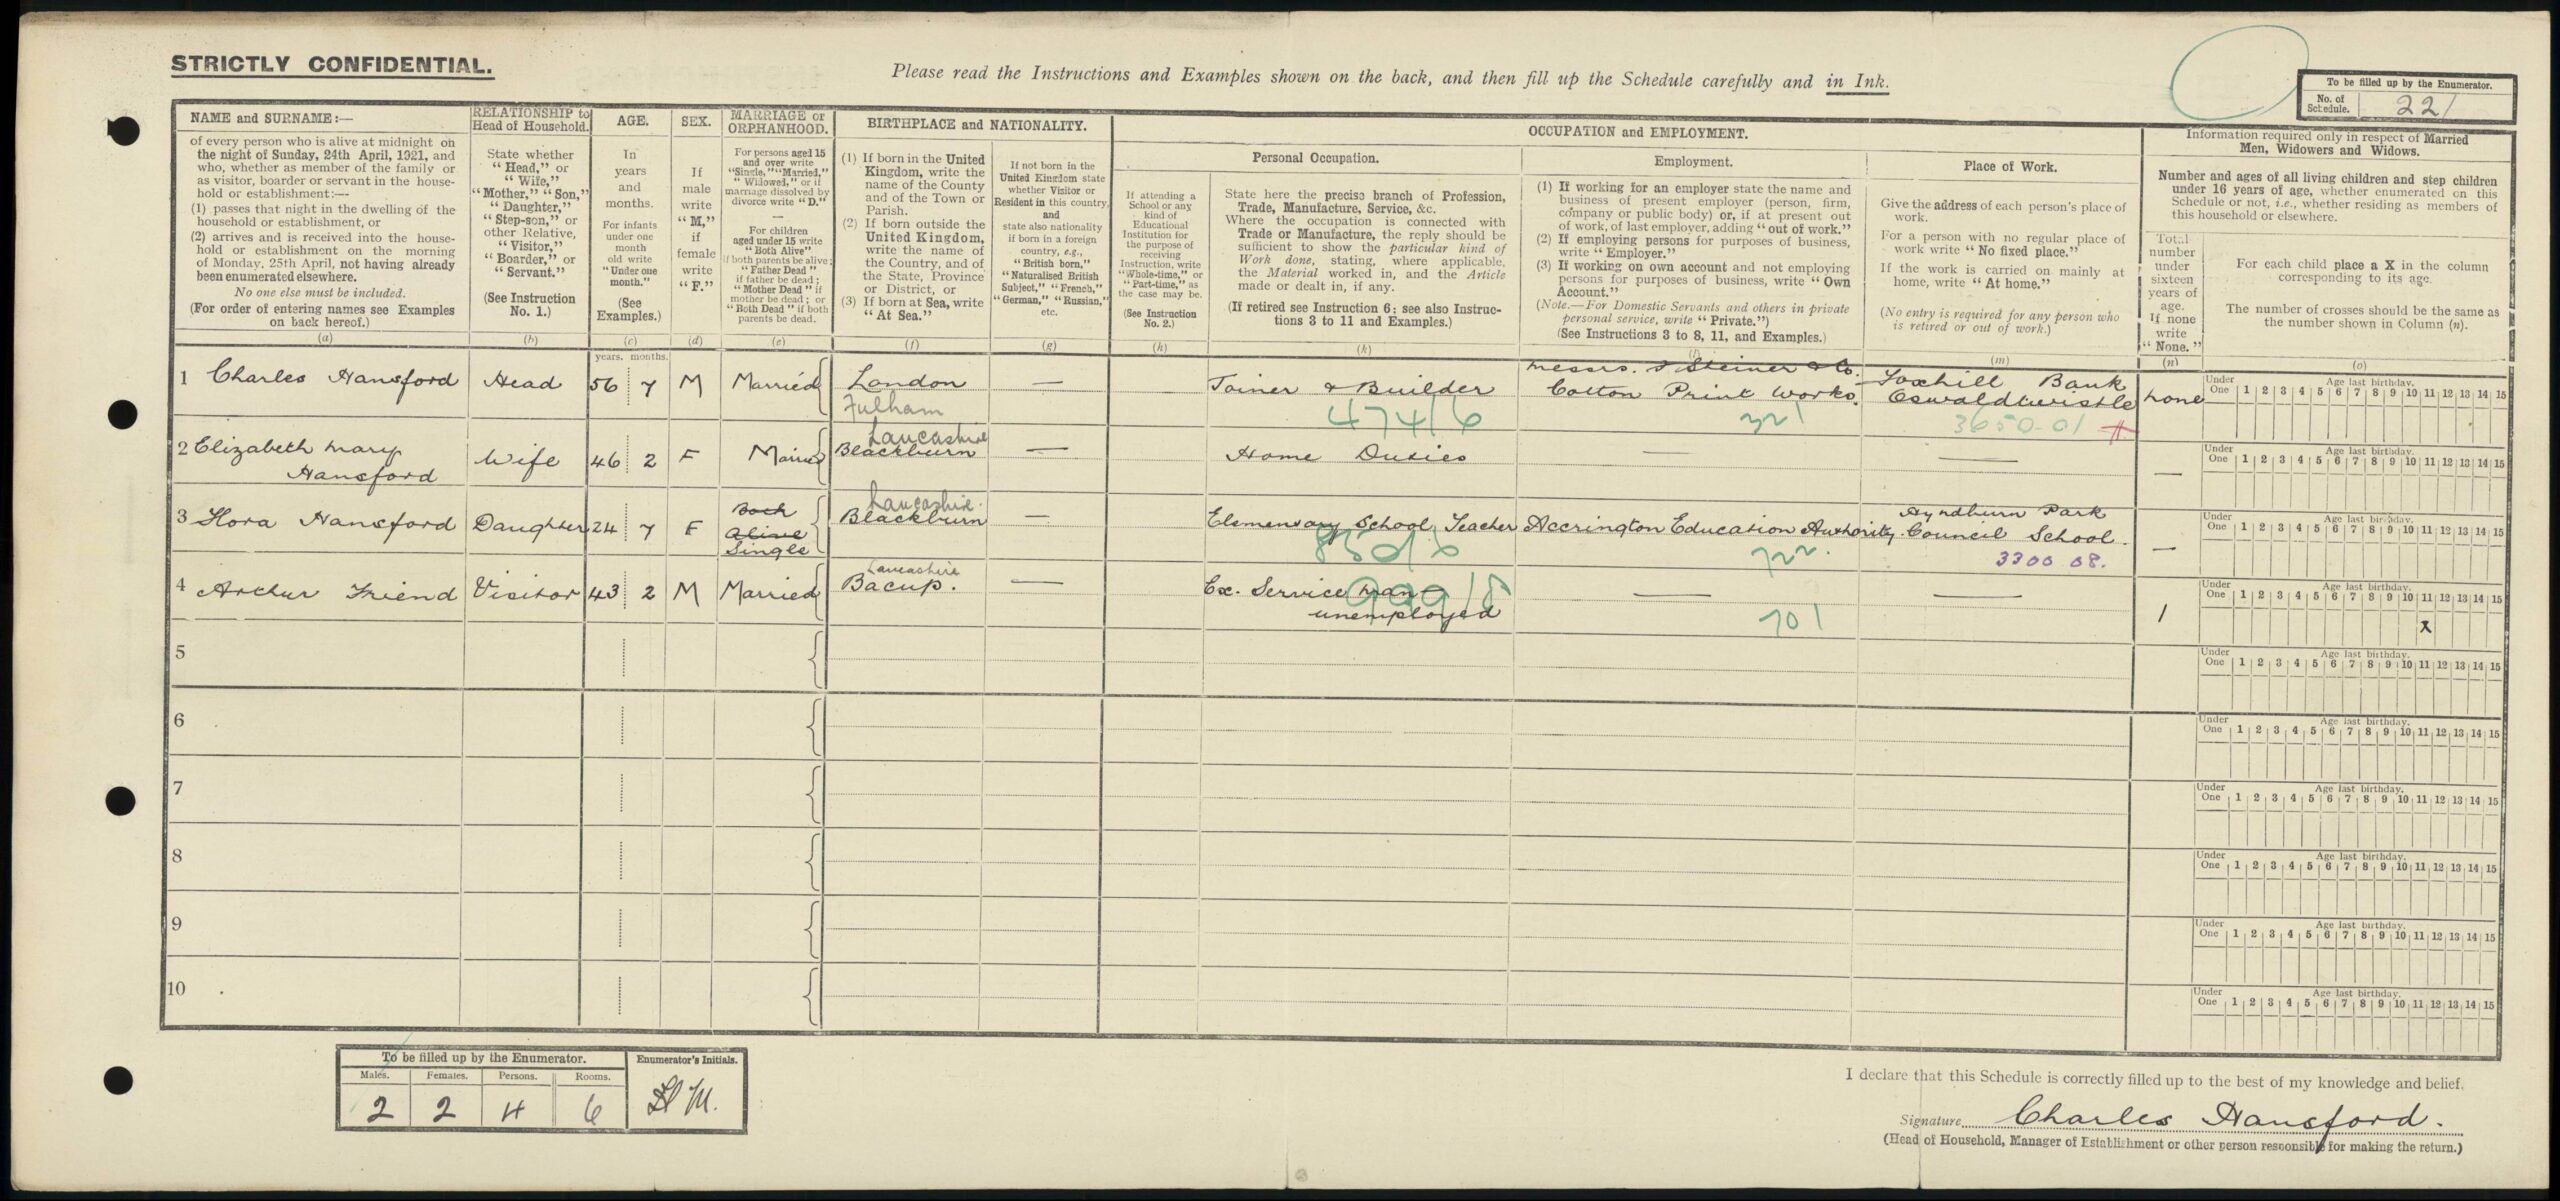 STRICTLY CONFIDENTIAL.
Please read the Instructions and Examples shown on the back, and then fill up the Schedule carefully and in Ink.
To be filled up by the Enumerator.
No. of Schedule. 221
NAME and SURNAME:—
of every person who is alive at midnight on
the night of Sunday, 24th April, 1921, and
who, whether as member of the family or
as visitor, boarder or servant in the house-
hold or establishment:—
(1) passes that night in the dwelling of the
household or establishment, or
(2) arrives and is received into the house-
hold or establishment on the morning
of Monday, 25th April, not having already
been enumerated elsewhere.
No one else must be included.
(For order of entering names see Examples
on back hereof.)
(a)
RELATIONSHIP to
Head of Household.
State whether
"Head," or
"Wife,"
"Mother," "Son,"
"Daughter,"
"Step-son," or
other Relative,
"Visitor,"
"Boarder," or
"Servant."
(See Instruction
No. 1.)
(b)
AGE.
In
years
and
months.
For infants
under one
month
old write
"Under one
month."
(See
Examples.)
(c)
years. months.
SEX.
If
male
write
"M,"
if
female
write
"F."
(d)
MARRIAGE or
ORPHANHOOD.
For persons aged 15
and over write
"Single," "Married,"
"Widowed," or if
marriage dissolved by
divorce write "D."
—
For children
aged under 15 write
"Both Alive"
if both parents be alive;
"Father Dead"
if father be dead;
"Mother Dead" if
mother be dead; or
"Both Dead" if both
parents be dead.
(e)
BIRTHPLACE and NATIONALITY.
(1) If born in the United
Kingdom, write the
name of the County
and of the Town or
Parish.
(2) If born outside the
United Kingdom,
write the name of
the Country, and of
the State, Province
or District, or
(3) If born at Sea, write
"At Sea."
(f)
If not born in the
United Kingdom state
whether Visitor or
Resident in this country,
and
state also nationality
if born in a foreign
country, e.g.,
"British born,"
"Naturalised British
Subject," "French,"
"German," "Russian,"
etc.
(g)
OCCUPATION and EMPLOYMENT.
If attending a
School or any
kind of
Educational
Institution for
the purpose of
receiving
Instruction, write
"Whole-time," or
"Part-time," as
the case may be.
(See Instruction
No. 2.)
(h)
Personal Occupation.
State here the precise branch of Profession,
Trade, Manufacture, Service, &c.
Where the occupation is connected with
Trade or Manufacture, the reply should be
sufficient to show the particular kind of
Work done, stating, where applicable,
the Material worked in, and the Article
made or dealt in, if any.
(If retired see Instruction 6: see also Instruc-
tions 3 to 11 and Examples.)
(k)
Employment.
(1) If working for an employer state the name and
business of present employer (person, firm,
company or public body) or, if at present out
of work, of last employer, adding "out of work."
(2) If employing persons for purposes of business,
write "Employer."
(3) If working on own account and not employing
persons for purposes of business, write "Own
Account."
(Note.—For Domestic Servants and others in private
personal service, write "Private.")
(See Instructions 3 to 8, 11, and Examples.)
(l)
Place of Work.
Give the address of each person's place of
work.
For a person with no regular place of
work write "No fixed place."
If the work is carried on mainly at
home, write "At home."
(No entry is required for any person who
is retired or out of work.)
(m)
Information required only in respect of Married
Men, Widowers and Widows.
Number and ages of all living children and step children
under 16 years of age, whether enumerated on this
Schedule or not, i.e., whether residing as members of
this household or elsewhere.
Total
number
under
sixteen
years of
age.
If none
write
"None."
(n)
For each child place a X in the column
corresponding to its age.
The number of crosses should be the same as
the number shown in Column (n).
(o)
Under One Age last birthday. 1 2 3 4 5 6 7 8 9 10 11 12 13 14 15
1 Charles Hansford Head 56 7 M Married London — Joiner & Builder Messrs. F Steiner & Co. Foxhill Bank none
Fulham Cotton Print Works. Oswaldtwistle
474/6 321 3650-01
Under One Age last birthday. 1 2 3 4 5 6 7 8 9 10 11 12 13 14 15
2 Elizabeth Mary Wife 46 2 F Married Lancashire Blackburn — Home Duties — — —
Hansford
Under One Age last birthday. 1 2 3 4 5 6 7 8 9 10 11 12 13 14 15
3 Flora Hansford Daughter 24 7 F Both Alive Single Lancashire. Blackburn — Elementary School Teacher Accrington Education Authority. Hyndburn Park Council School. —
850/6 722. 3300 08.
Under One Age last birthday. 1 2 3 4 5 6 7 8 9 10 11 12 13 14 15
4 Arthur Friend Visitor 43 2 M Married Lancashire Bacup. — Ex. Service man — — 1 X
unemployed
999/8 701
Under One Age last birthday. 1 2 3 4 5 6 7 8 9 10 11 12 13 14 15
5
Under One Age last birthday. 1 2 3 4 5 6 7 8 9 10 11 12 13 14 15
6
Under One Age last birthday. 1 2 3 4 5 6 7 8 9 10 11 12 13 14 15
7
Under One Age last birthday. 1 2 3 4 5 6 7 8 9 10 11 12 13 14 15
8
Under One Age last birthday. 1 2 3 4 5 6 7 8 9 10 11 12 13 14 15
9
Under One Age last birthday. 1 2 3 4 5 6 7 8 9 10 11 12 13 14 15
10
Under One Age last birthday. 1 2 3 4 5 6 7 8 9 10 11 12 13 14 15
To be filled up by the Enumerator.
Males. Females. Persons. Rooms.
2 2 4 6
Enumerator's Initials.
I declare that this Schedule is correctly filled up to the best of my knowledge and belief.
Signature Charles Hansford.
(Head of Household, Manager of Establishment or other person responsible for making the return.)